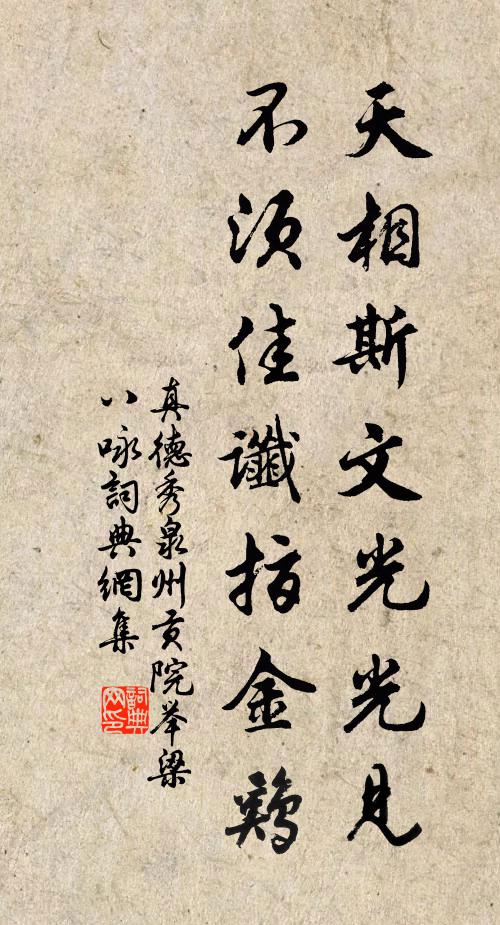 天相斯文光光見
不須佳讖指金鷄
真德秀泉州貢院举梁
八咏詞典網集
詞典网印